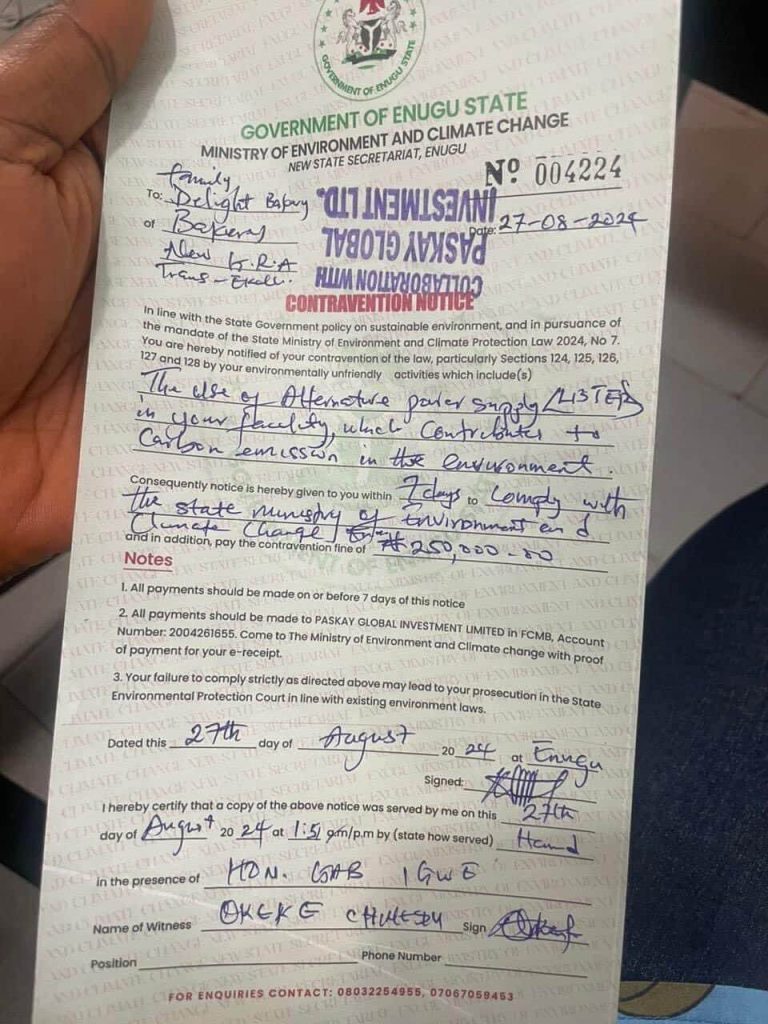 GOVERNMENT OF ENUGU STATE
GOVERNMENT OF ENUGU STATE
MINISTRY OF ENVIRONMENT AND CLIMATE CHANGE
NEW STATE SECRETARIAT, ENUGU
Nº 004224
family
To: Delight Bakery
of Bakery
New G.R.A
Trans-Ekulu.
Date: 27-08-2024
COLLABORATION WITH
PASKAY GLOBAL
INVESTMENT LTD.
CONTRAVENTION NOTICE
In line with the State Government policy on sustainable environment, and in pursuance of
the mandate of the State Ministry of Environment and Climate Protection Law 2024, No 7.
You are hereby notified of your contravention of the law, particularly Sections 124, 125, 126,
127 and 128 by your environmentally unfriendly activities which include(s)
The use of Alternative power supply (LISTER)
in your facility, which contributes to
Carbon emission in the environment.
Consequently notice is hereby given to you within 7 days to comply with
the state ministry of Environment and
Climate Change
and in addition, pay the contravention fine of ₦250,000-00
Notes
1. All payments should be made on or before 7 days of this notice
2. All payments should be made to PASKAY GLOBAL INVESTMENT LIMITED in FCMB, Account
Number: 2004261655. Come to The Ministry of Environment and Climate change with proof
of payment for your e-receipt.
3. Your failure to comply strictly as directed above may lead to your prosecution in the State
Environmental Protection Court in line with existing environment laws.
Dated this 27th day of August 2024 at Enugu
Signed:
I hereby certify that a copy of the above notice was served by me on this 27th
day of August 2024 at 1:51 am/p.m by (state how served) Hand
in the presence of HON. GAB IGWE
Name of Witness OKEKE Sign
Position Phone Number
FOR ENQUIRIES CONTACT: 08032254955, 07067059453